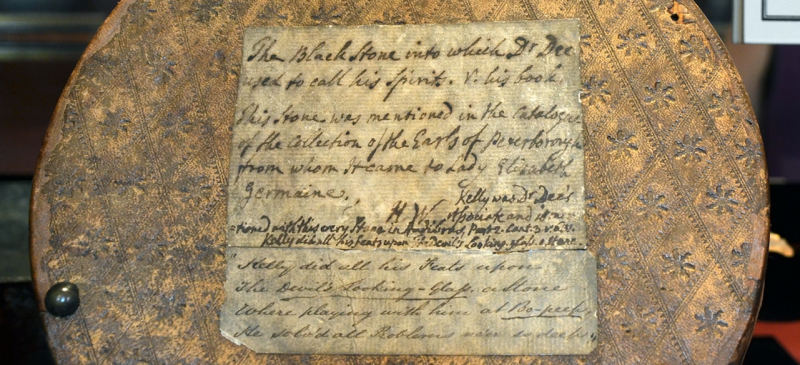 The Black Stone into which Dr Dee
used to call his Spirits. V. his book.
This Stone was mentioned in the Catalogue
of the Collection of the Earls of Peterborough
from whom it came to Lady Elizabeth
Germaine.
Kelly was Dr Dee's
H W. Associate and is men
=tioned with this very Stone in Hudibras, Part 2. Cant. 3. v.
Kelly did all his feats upon The Devil's Looking-glass, a Stone.
"Kelly did all his Feats upon
The Devil's Looking-Glass, a Stone
Where playing with him at Bo-peep,
He solv'd all Problems ne'er so deep."